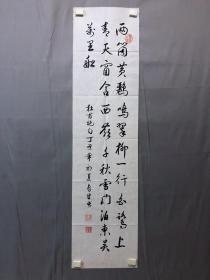 两箇黄鸝鳴翠柳一行白鷺上
青天窗含西嶺千秋雪门泊東吴
萬里船
杜甫絶句丁丑年初夏